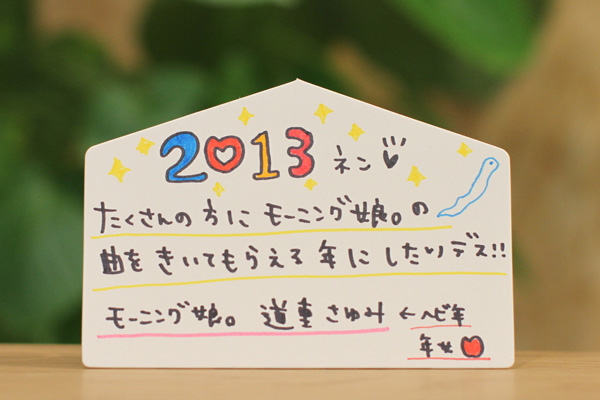 2013ネン
たくさんの方にモーニング娘。の
曲をきいてもらえる年にしたいデス!!
モーニング娘。 道重さゆみ ←ヘビ年
年女